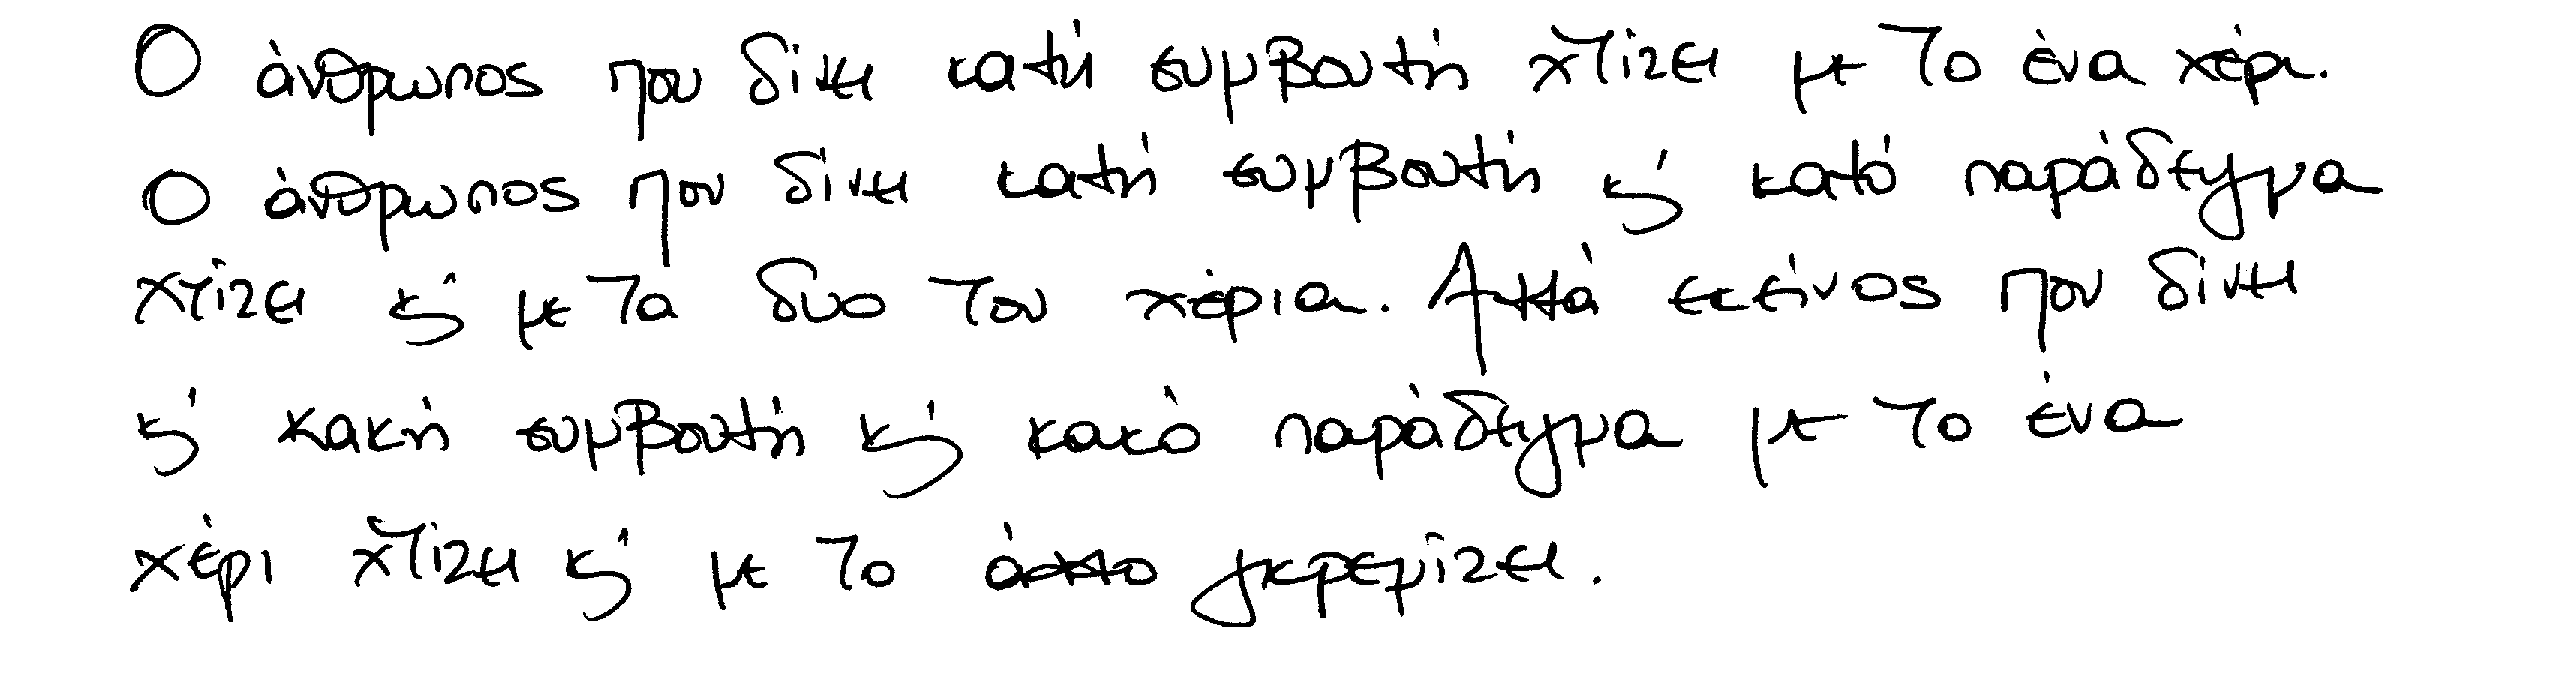 Ο άνθρωπος που δίνει καλή συμβουλή χτίζει με το ένα χέρι.
Ο άνθρωπος που δίνει καλή συμβουλή κ' καλό παράδειγμα
χτίζει κ' με τα δυο του χέρια. Αλλά εκείνος που δίνει
κ' κακή συμβουλή κ' κακό παράδειγμα με το ένα
χέρι χτίζει κ' με το άλλο γκρεμίζει.